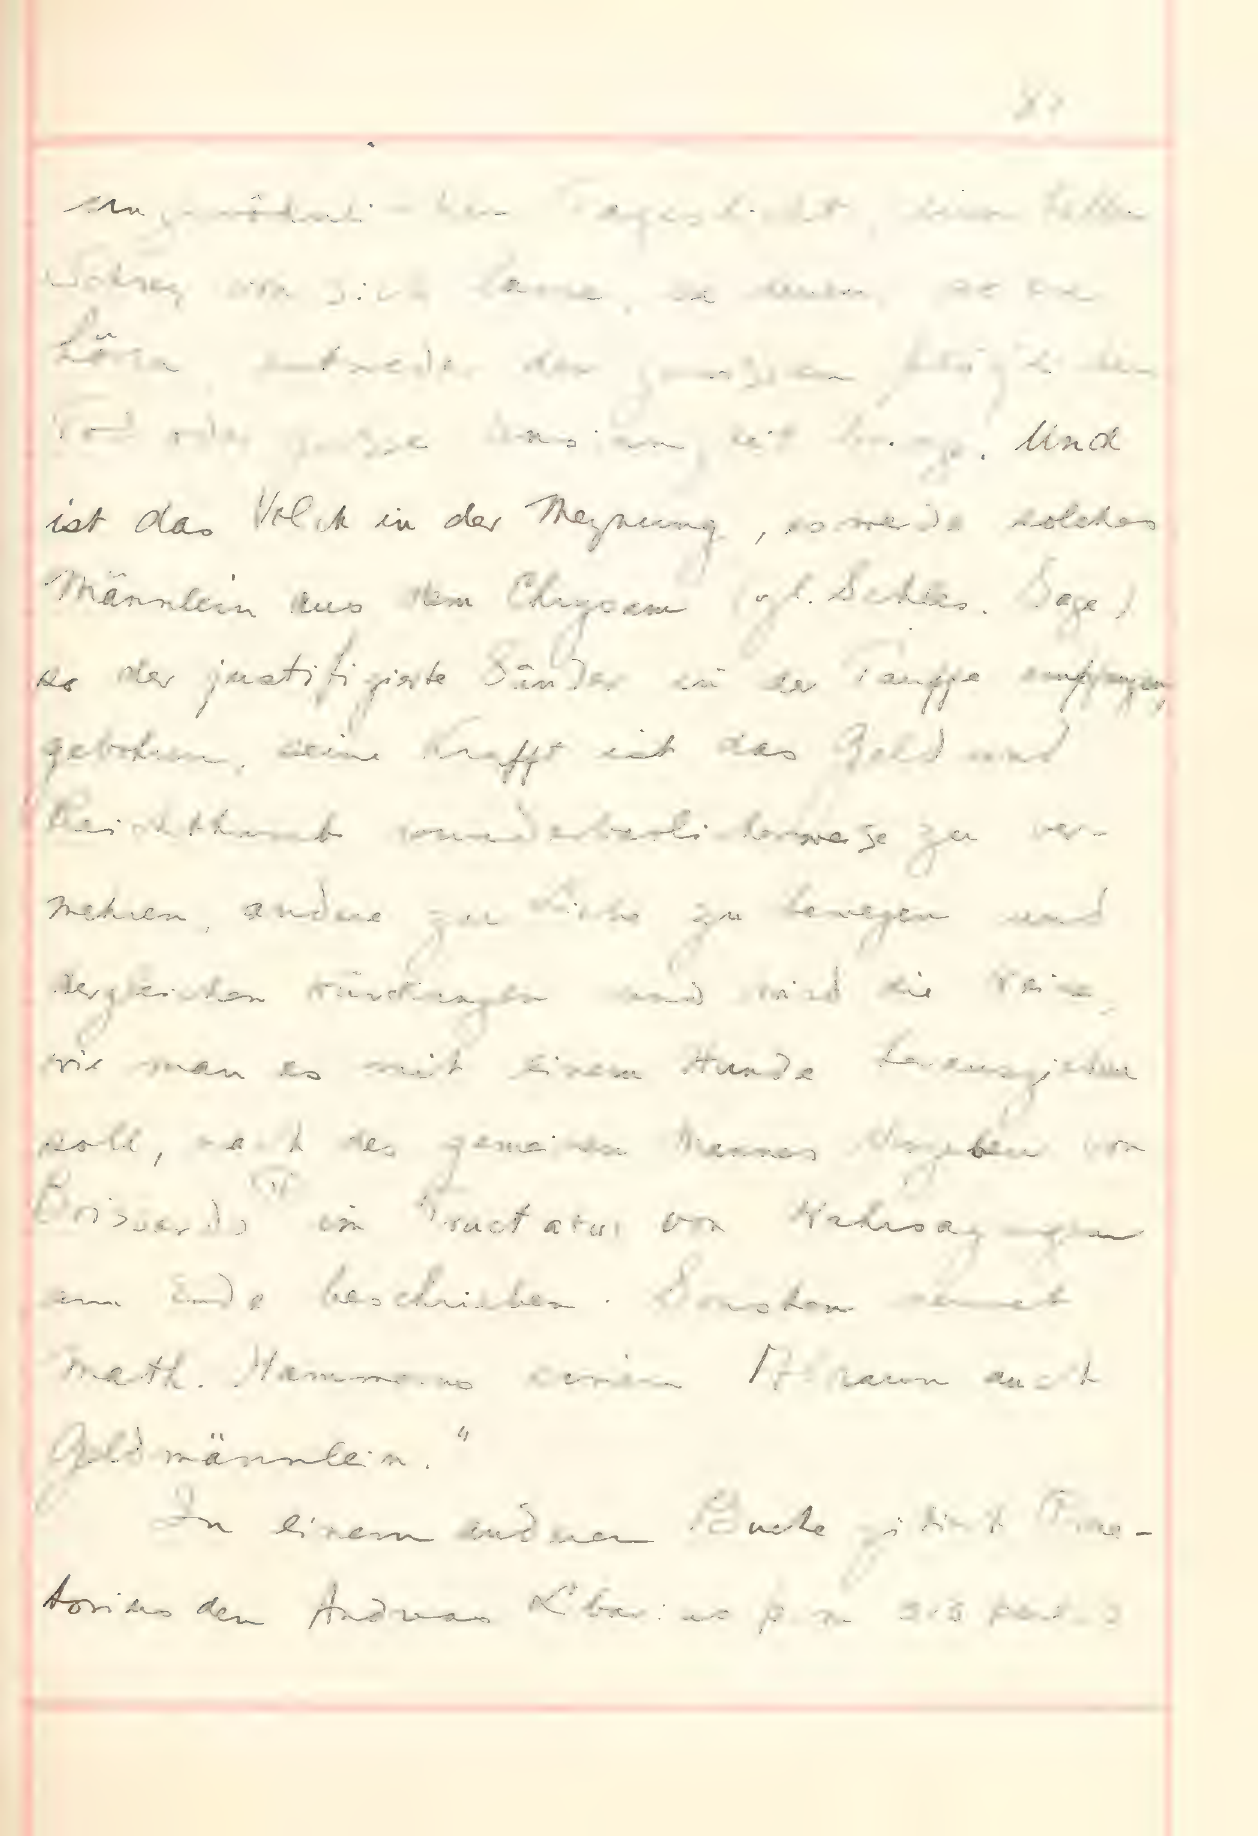 ungewöhnlichen Tageslicht, einen hellen
von sich lasse, so denen, so es
hören entweder den
Tod oder grosse bringe. Und
ist das Volck in der Meynung, es werde solches
Männlein aus dem Chrysam (vgl. Schles. Sage)
so der justifizierte Sünder in der Tauffe empfangen
gebohren, seine Krafft ist das Geld und
Reichthumb wunderbarlicherweise zu ver-
mehren, andere zu Liebe zu bewegen und
dergleichen Würckungen und wird die Weise,
wie man es mit einem Hunde herausziehen
soll, nach des gemeinen Mannes Vorgeben von
Boissardo im Tractatus von Wahrsagungen
am Ende beschrieben. Sonsten nennet
Math. Hammerus einen Alraun auch
Geldmännlein."
In einem anderen Buche zitiert Prae-
torius den Andreas Libavius